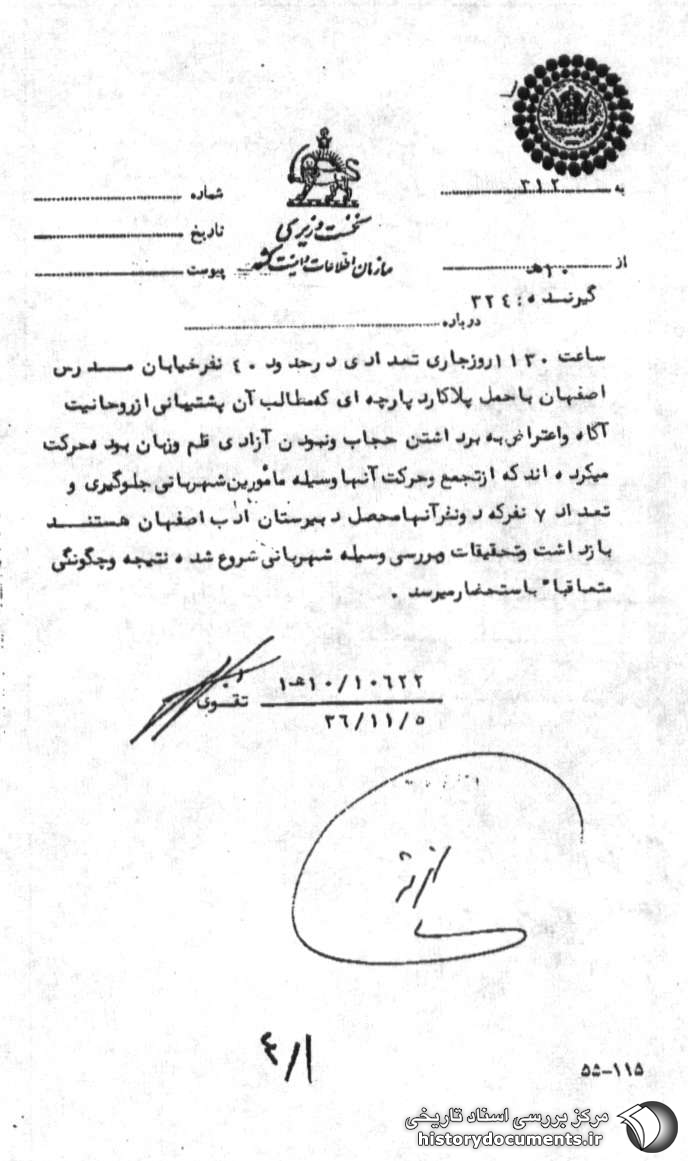 به ۳۱۲
شماره
نخست وزیری
تاریخ
سازمان اطلاعات و امنیت کشور
پیوست
از ۱۰ هـ
گیرنده : ۳۲٤
درباره
ساعت ۱۱۳۰ روزجاری تعدادی درحدود ٤۰ نفرخیابان مدرس
اصفهان باحمل پلاکارد پارچه ای که مطالب آن پشتیبانی ازروحانیت
آگاه واعتراض به برداشتن حجاب ونبودن آزادی قلم وزبان بوده حرکت
میکرده اند که ازتجمع وحرکت آنها وسیله مأمورین شهربانی جلوگیری و
تعداد ۷ نفرکه دونفرآنها محصل دبیرستان ادب اصفهان هستند
بازداشت وتحقیقات وبررسی وسیله شهربانی شروع شده نتیجه وچگونگی
متعاقبا" باستحضارمیرسد .
۱۰/۱۰٦۲۲هـ۱
تقوی
۳٦/۱۱/۵
٤/۱
۵۵-۱۱۵
مرکز بررسی اسناد تاریخی
historydocuments.ir